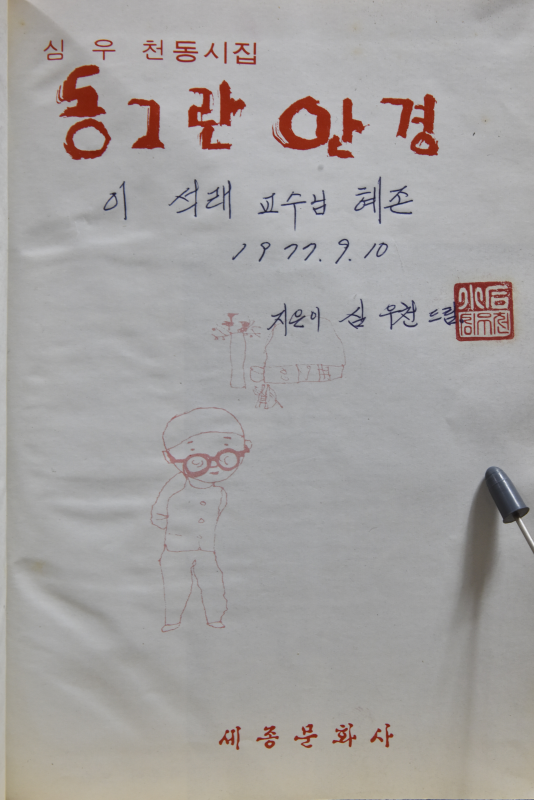 심 우 천 동시집
동그란 안경
이 석래 교수님 혜존
1977. 9. 10
지은이 심 우천 드림
세종문화사